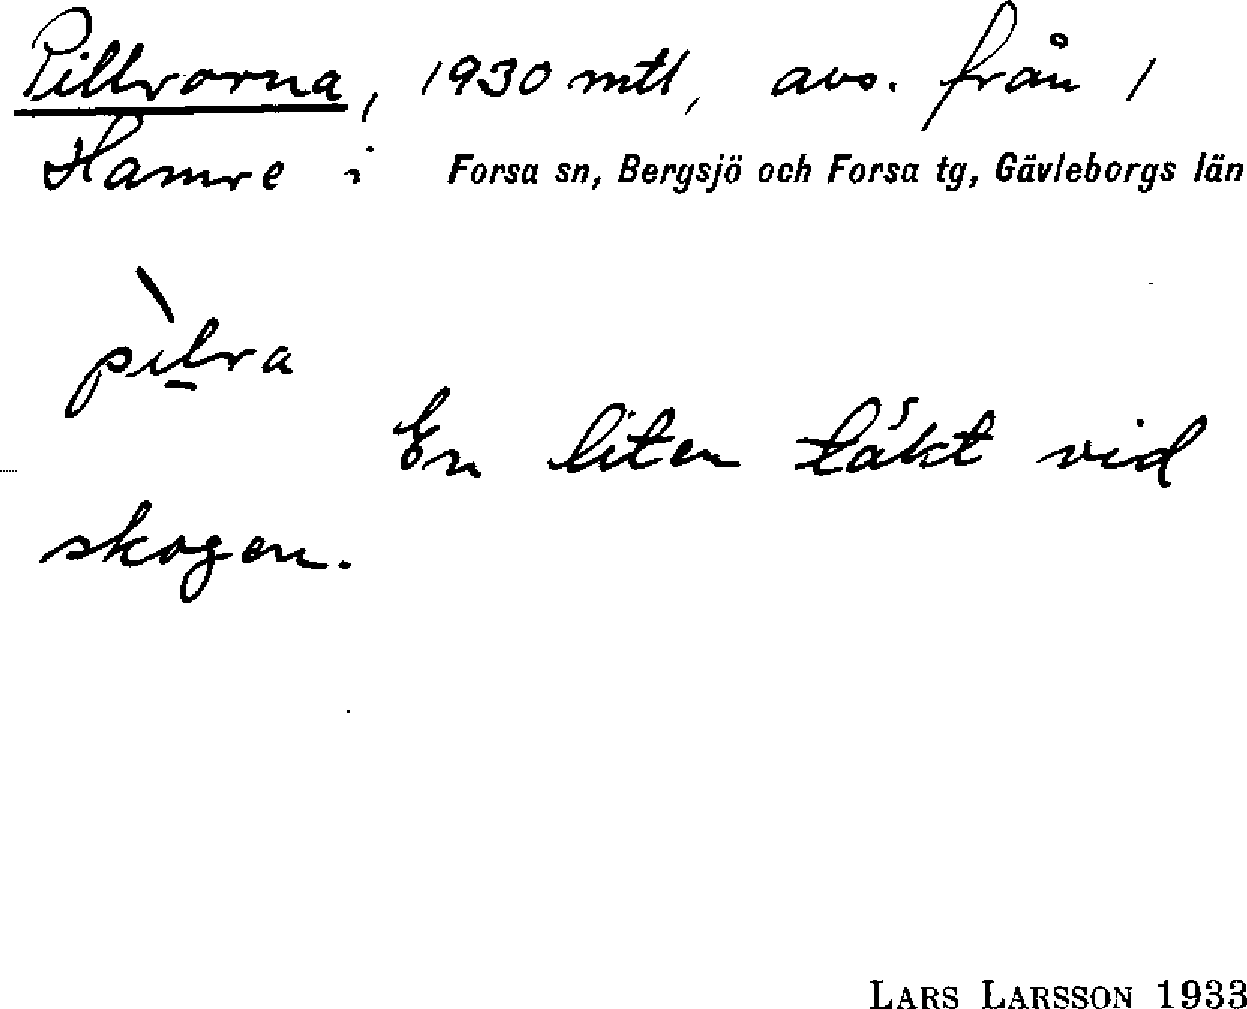 Pillrorna, 1930 mtl, avs. från 1
Hamre i Forsa sn, Bergsjö och Forsa tg, Gävleborgs län
pìl̠ra
En liten täkt vid
skogen.
LARS LARSSON 1933